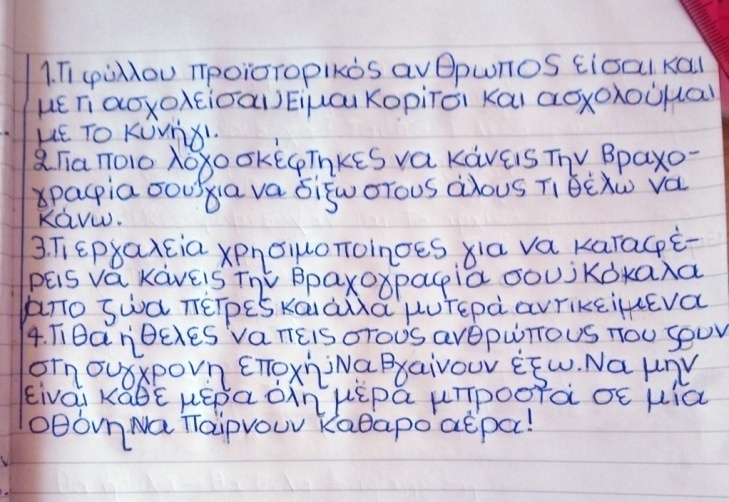 1.Τι φύλλου προϊστορικός ανθρωπος είσαι και
με τι ασχολείσαι; Είμαι κορίτσι και ασχολούμαι
με το κυνήγι.
2.Για ποιο λόγο σκέφτηκες να κάνεις την βραχο-
γραφία σου; για να δίξω στους άλους τι θέλω να
κάνω.
3.Τι εργαλεία χρησιμοποίησες για να καταφέ-
ρεις να κάνεις την βραχογραφία σου; Κόκαλα
απο ζώα πέτρες και άλλα μυτερά αντικείμενα
4.Τι θα ήθελες να πεις στους ανθρώπους που ζουν
στη συγχρονη εποχή; Να βγαίνουν έξω. Να μην
είναι κάθε μέρα όλη μέρα μπροστά σε μία
οθόνη. Να παίρνουν καθαρο αέρα!